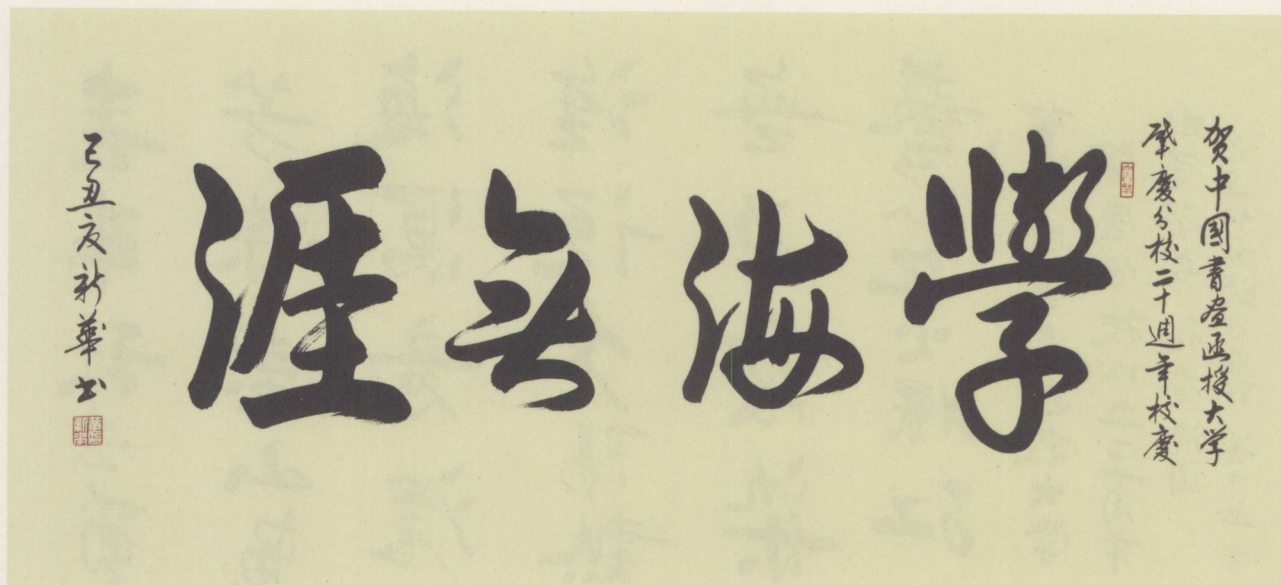 贺中國書畫函授大学
肇慶分校二十週年校慶
學海无涯
己丑夏新華书